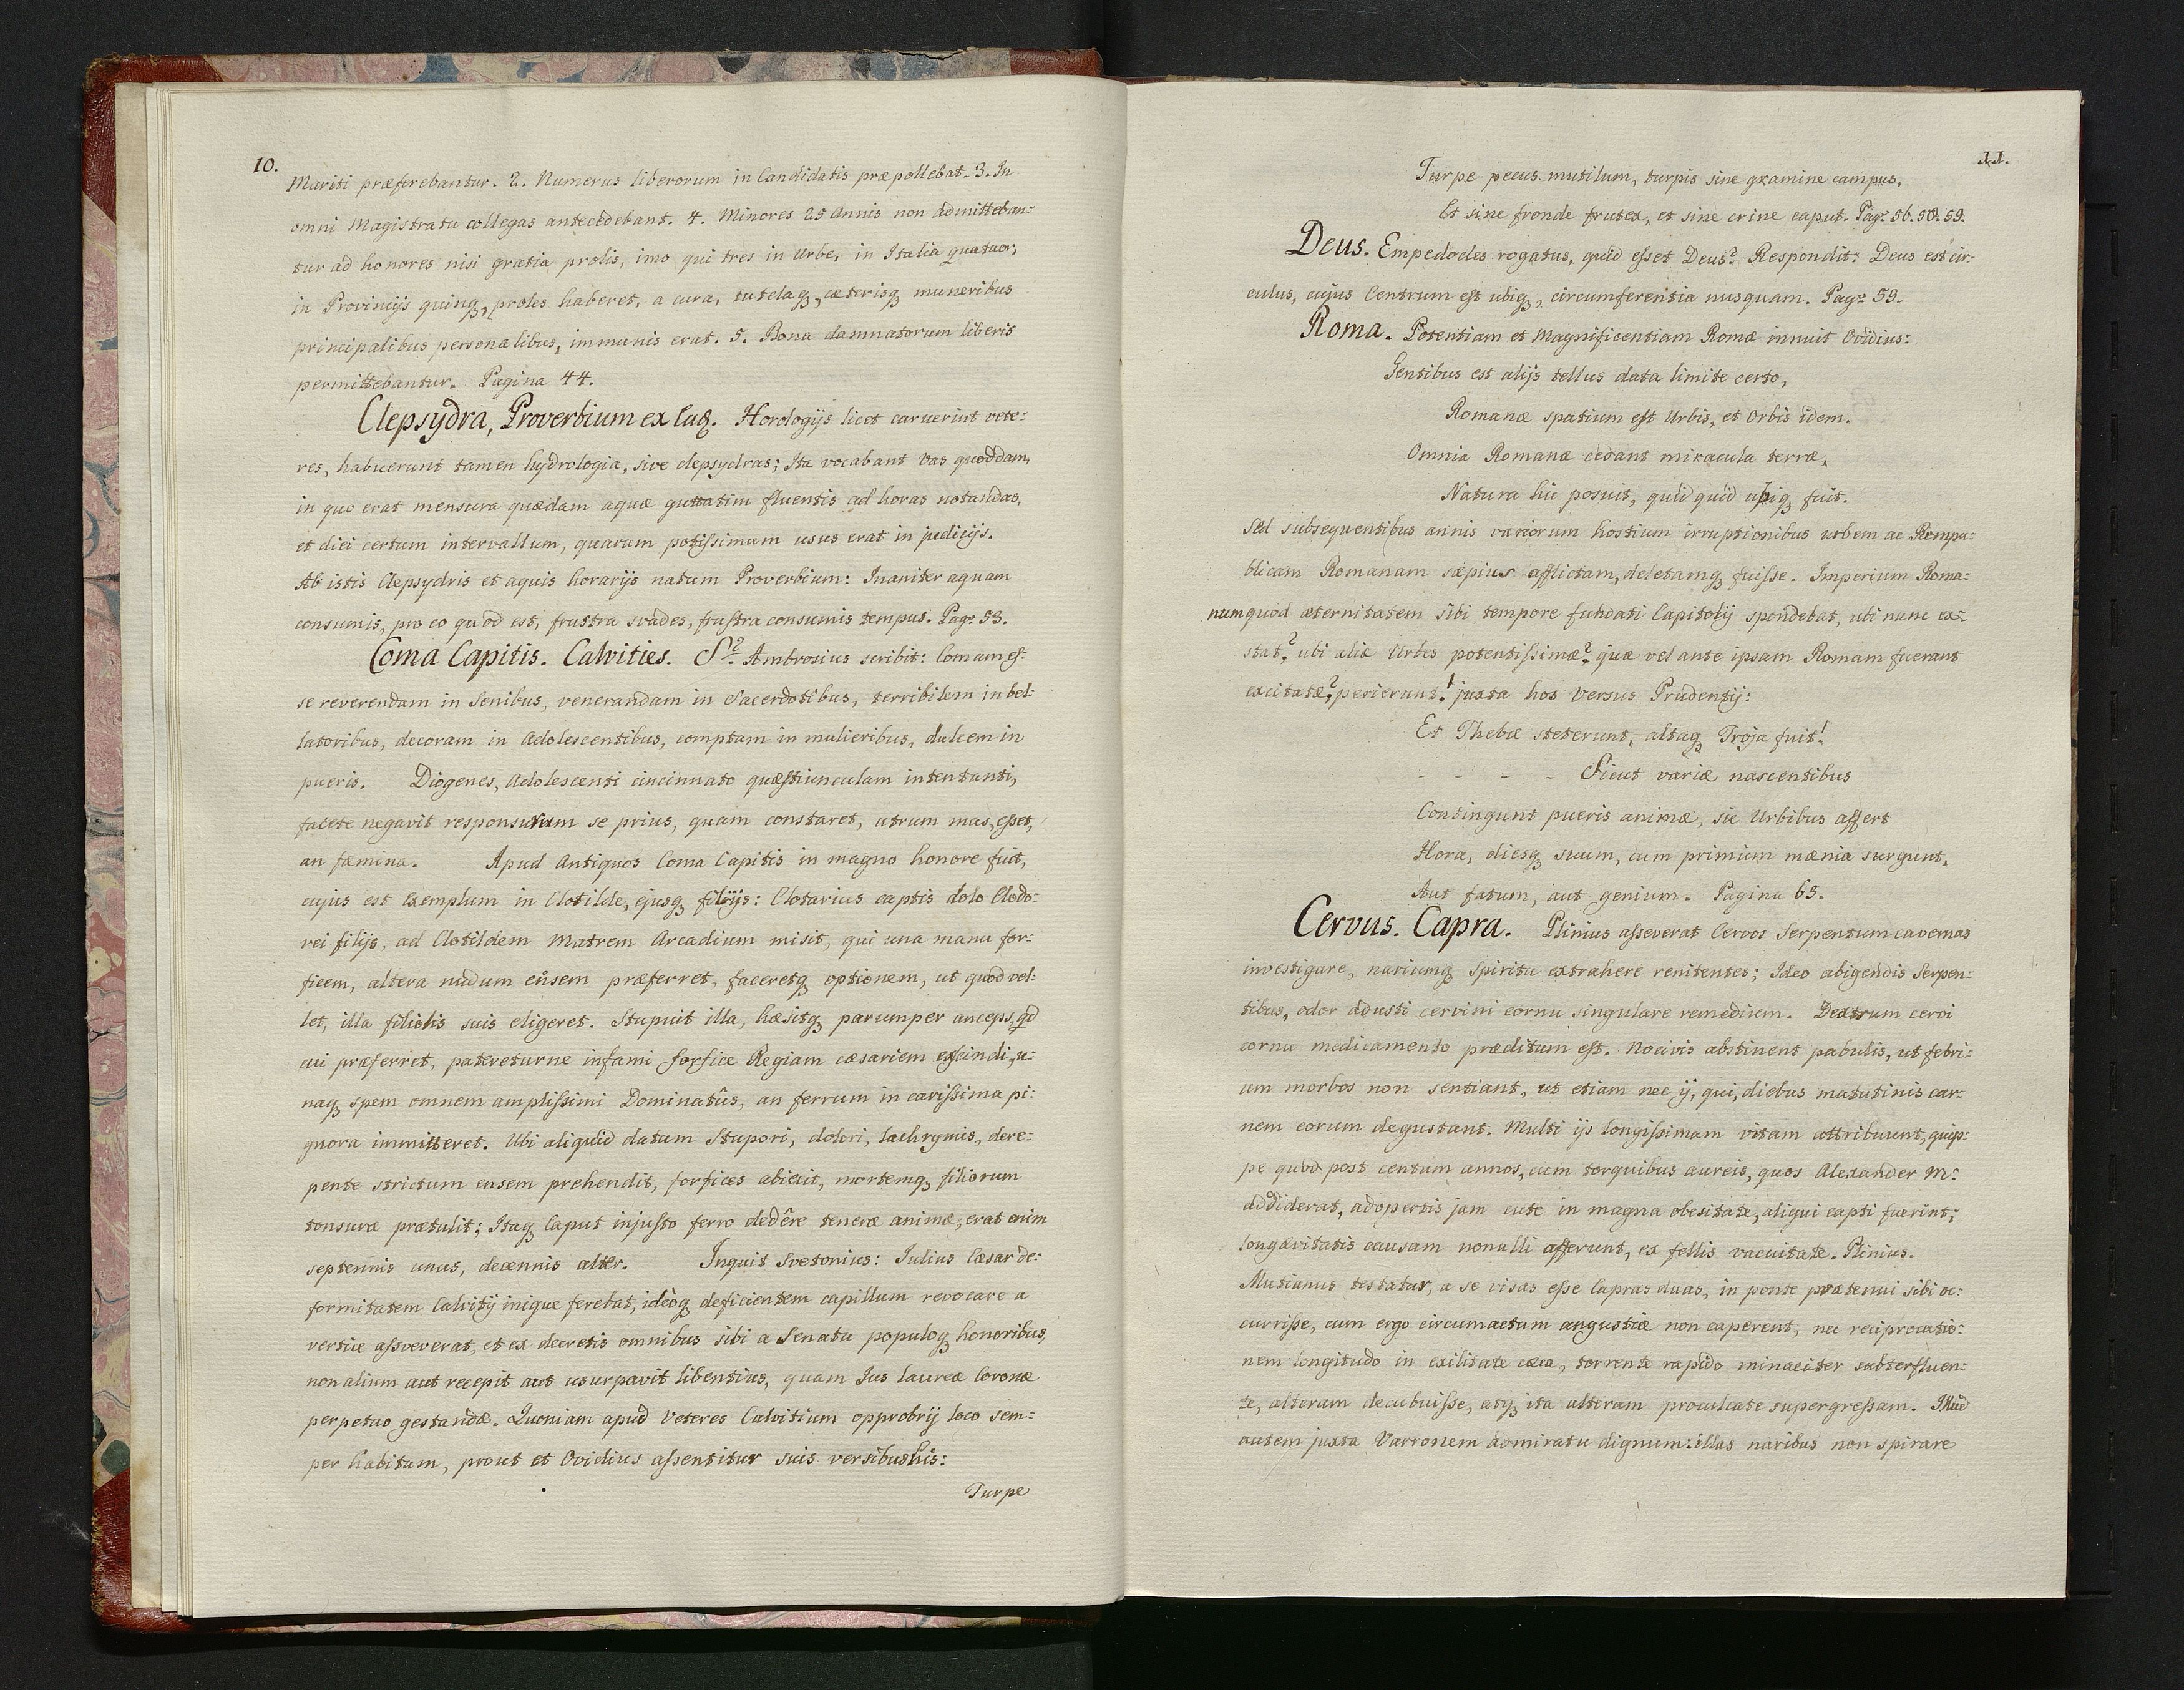 10.
Mariti præferebantur. 2. Numerus liberorum in Candidatis præpollebat. 3. In
omni Magistratu collegas antecedebant. 4. Minores 25 Annis non admitteban:
tur ad honores nisi gratia prolis, imo qui tres in Urbe, in Italia quatuor,
in Provincijs quinq, proles haberet, a cura, tutelaq, cæterisq muneribus
principalibus personalibus, immunis erat. 5. Bona damnatorum liberis
permittebantur. Pagina 44.
Clepsydra, Proverbium ex Horologijs licet caruerint vete:
res, habuerunt tamen hydrologia, sive clepsydras; Ita vocabant Vas quoddam,
in quo erat mensura quædam aquæ guttatim fluentis ad horas notandas,
et diei certum intervallum, quarum potissimum usus erat in judicijs.
Ab istis Clepsydris et aquis horarijs natum Proverbium: Inaniter aquam
consumis, pro eo quod est, frustra svades, frustra consumis tempus. Pag: 53.
Coma Capitis. Calvities. S. Ambrosius scribit: Comam es:
se reverendam in Senibus, venerandam in Sacerdotibus, terribilem in bel:
latoribus, decoram in Adolescentibus, comptam in mulieribus, dulcem in
pueris. Diogenes, Adolescenti cincinnato quæstiunculam intentanti,
facete negavit responsurum se prius, quam constaret, utrum mas, esset,
an fæmina. Apud Antiquos Coma Capitis in magno honore fuit,
cujus est Exemplum in Clotilde, ejusq filijs: Clotarius captis dolo Clodo:
vei filijs, ad Clotildem Matrem Arcadium misit, qui una manu for:
ficem, altera nudum ensem præferret, faceretq optionem, ut quod vel:
let, illa filiolis suis eligeret. Stupuit illa, hæsitq parumper anceps, qd
cui præferret, patereturne infami forfice Regiam cæsariem exscindi, u:
naq spem omnem amplissimi Dominatûs, an ferrum in carissima pi:
gnora immitteret. Ubi aliquid datum Stupori, dolori, lachrymis, dere:
pente strictum ensem prehendit, forfices abiecit, mortemq filiorum
tonsuræ prætulit; Itaq Caput injusto ferro dedêre teneræ animæ, erat enim
septennis unus, decennis alter. Inquit Svetonius: Iulius Cæsar de:
formitatem Calvitij inique ferebat, ideòq deficientem capillum revocare a
vertice assveverat, et ex decretis omnibus sibi a Senatu populoq honoribus,
non alium aut recepit aut usurpavit libentius, quam Ius laureæ Coronæ
perpetuo gestandæ. Quoniam apud Veteres Calvitium opprobrij loco sem:
per habitum, prout et Ovidius assentitur suis versibus his:
Turpe
11.
Turpe pecus mutilum, turpis sine gramine campus,
Et sine fronde frutex, et sine crine caput. Pag: 56. 58. 59.
Deus. Empedocles rogatus, quid esset Deus? Respondit: Deus est cir:
culus, cujus Centrum est ubiq, circumferentia nusquam. Pag: 59.
Roma. Potentiam et Magnificentiam Romæ innuit Ovidius:
Gentibus est alijs tellus data limite certo,
Romanæ spatium est Urbis, et Orbis idem.
Omnia Romanæ cedant miracula terræ,
Natura hic posuit, quidquid ubiq fuit.
Sed subsequentibus annis variorum hostium irruptionibus urbem ac Rempu:
blicam Romanam sæpius afflictam, deletamq fuisse. Imperium Roma:
num quod æternitatem sibi tempore fundati Capitolij spondebat, ubi nunc ex:
stat? ubi aliæ Urbes potentissimæ? quæ vel ante ipsam Romam fuerant
excitatæ? perierunt! juxta hos Versus Prudentij:
Et Thebæ steterunt, altaq Troja fuit!
- - - - Sicut variæ nascentibus
Contingunt pueris animæ, sic Urbibus affert
Hora, diesq suum, cum primum mænia surgunt,
Aut fatum, aut genium. Pagina 63.
Cervus. Capra. Plinius asseverat Cervos Serpentum cavernas
investigare, nariumq spiritu extrahere renitentes; Ideo abigendis Serpen:
tibus, odor adusti cervini cornu singulare remedium. Dextrum cervi
cornu medicamento præditum est. Nocivis abstinent pabulis, ut febri:
um morbos non sentiant, ut etiam nec ij, qui, diebus matutinis car:
nem eorum degustant. Multi ijs longissimam vitam attribuunt, quip:
pe quod post centum annos, cum torquibus aureis, quos Alexander M:
addiderat, adopertis jam cute in magna obesitate, aliqui capti fuerint;
longævitatis causam nonulli afferunt, ex fellis vacuitate. Plinius.
Mutianus testatur, a se visas esse Capras duas, in ponte prætenui sibi oc:
currisse, cum ergo circumactum angustiæ non caperent, nec reciprocatio:
nem longitudo in exilitate cæca, torrente rapido minaciter subterfluen:
te, alteram decubuisse, atq ita alteram proculcatæ supergressam. Illud
autem juxta Varronem admiratu dignum: illas naribus non spirare